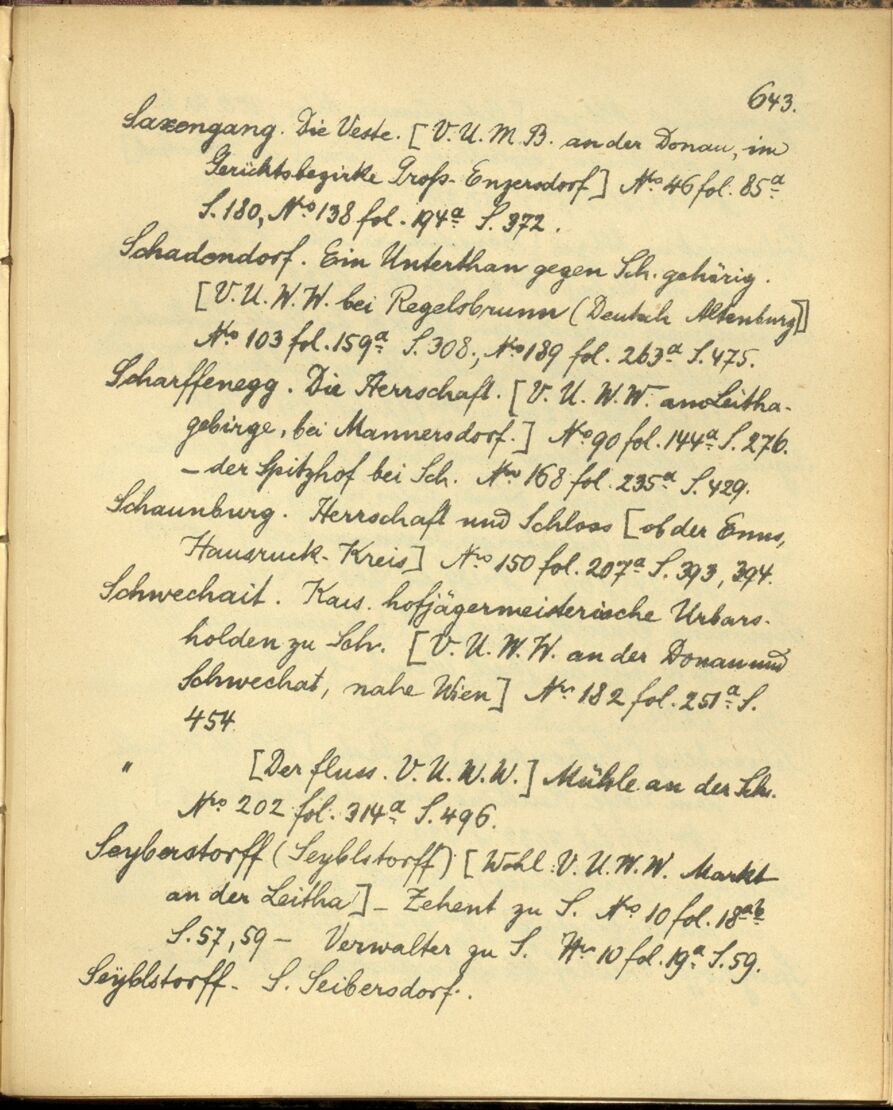 643.
Saxengang. Die Veste. [V. U. M. B. an der Donau, im
Gerichtsbezirke Groß-Enzersdorf] Nro 46 fol. 85a
S. 180, Nro 138 fol. 194a S. 372.
Schadendorf. Ein Unterthan gegen Sch. gehörig.
[V. U. W. W. bei Regelsbrunn (Deutsch Altenburg)]
Nro 103 fol. 159a S. 308., Nro 189 fol. 263a S. 475.
Scharffenegg. Die Herrschaft. [V. U. W. W. am Leitha-
gebirge, bei Mannersdorf.] Nro 90 fol. 144a S. 276.
– der Spitzhof bei Sch. Nro 168 fol. 235a S. 429.
Schaunburg. Herrschaft und Schloss [ob der Enns,
Hausruck-Kreis] Nro 150 fol. 207a S. 393, 394.
Schwechait. Kais. hofjägermeisterische Urbars-
holden zu Sch. [V. U. W. W. an der Donau und
Schwechat, nahe Wien] Nro 182 fol. 251a S.
454
" [Der fluss. V. U. W. W.] Mühle an der Sch.
Nro 202 fol. 314a S. 496.
Seyberstorff (Seyblstorff) [Wohl: V. U. W. W. Markt
an der Leitha] – Zehent zu S. Nro 10 fol. 18ab
S. 57, 59 – Verwalter zu S. Nro 10 fol. 19a S. 59.
Seyblstorff – S. Seibersdorf.